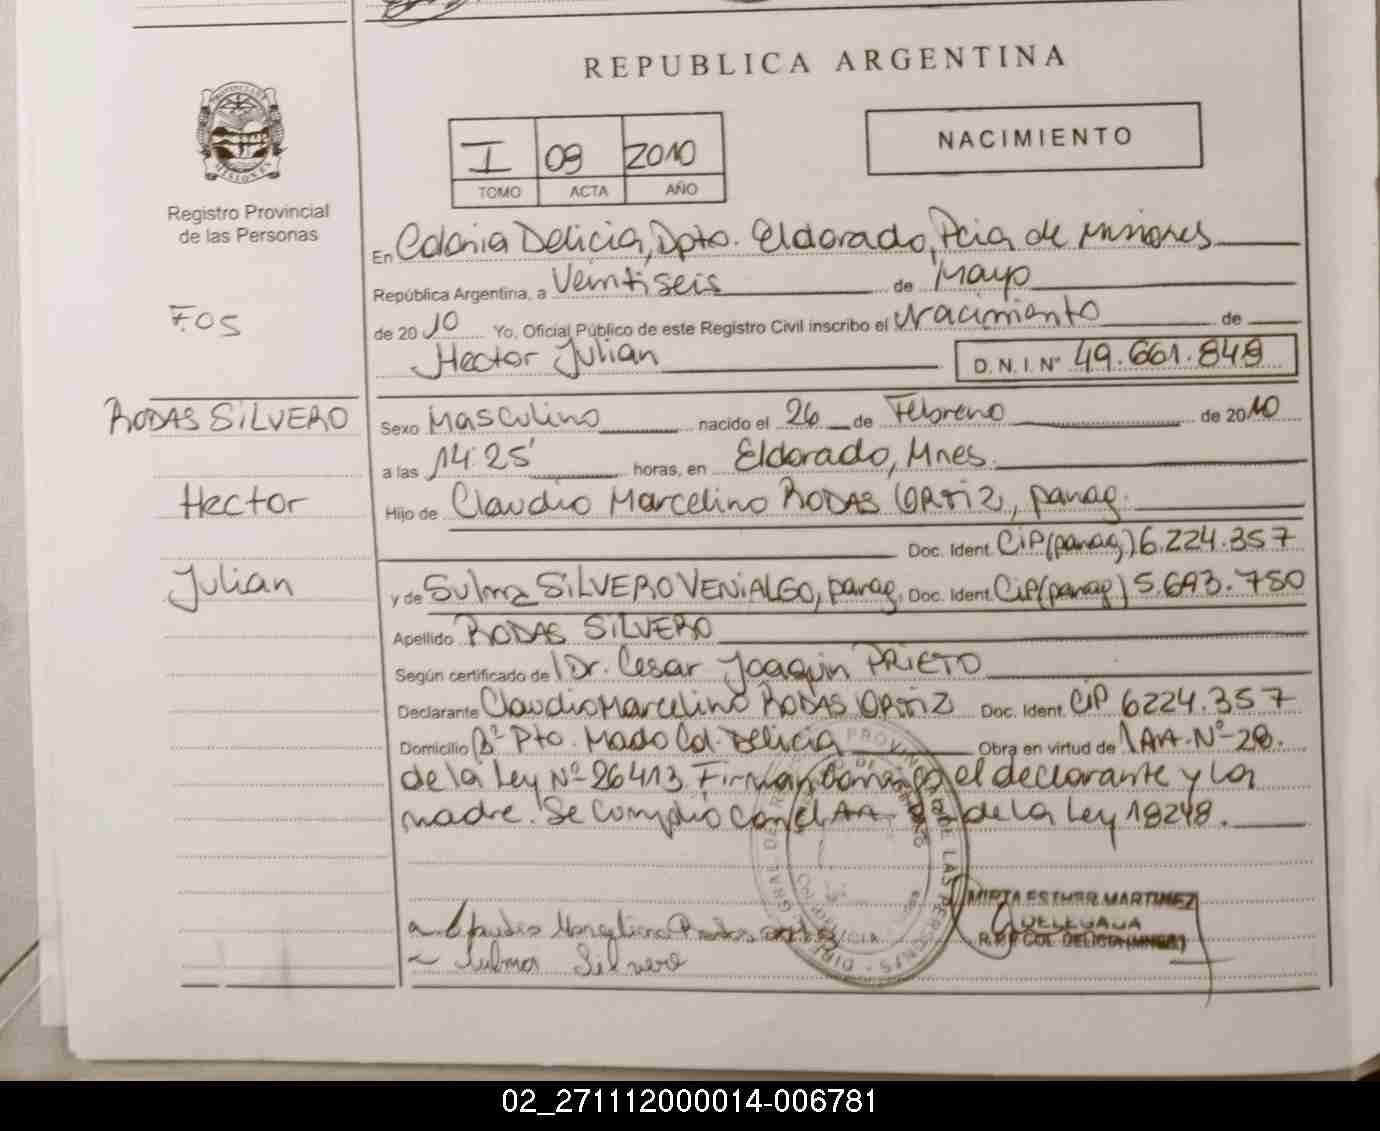 REPUBLICA ARGENTINA
I 09 2010
TOMO ACTA AÑO
NACIMIENTO
Registro Provincial
de las Personas
F.05
RODAS SILVERO
Hector
Julian
En Colonia Delicia, Dpto. Eldorado, Pcia de Misiones
República Argentina, a Veintiseis de Mayo
de 2010 Yo, Oficial Público de este Registro Civil inscribo el Nacimiento de
Hector Julian D.N.I. Nº 49.661.849
Sexo Masculino nacido el 26 de Febrero de 2010
a las 14:25' horas, en Eldorado, Mnes.
Hijo de Claudio Marcelino RODAS ORTIZ, parag.
Doc. Ident. CIP(parag) 6.224.357
y de Sulma SILVERO VENIALGO, parag, Doc. Ident. CIP(parag) 5.693.750
Apellido RODAS SILVERO
Según certificado de Dr. Cesar Joaquin PRIETO
Declarante Claudio Marcelino RODAS ORTIZ Doc. Ident. CIP 6224.357
Domicilio Bº Pto. Mado Col. Delicia Obra en virtud de Art. Nº 28.
de la Ley Nº 26413 Firman conmigo el declarante y la
madre. Se cumplió con el Art. de la Ley 18248.
Claudio Marcelino Rodas Ortiz
Sulma Silvero
MIRTA ESTHER MARTINEZ
DELEGADA
R.P.P COL. DELICIA (MNES)
02_271112000014-006781